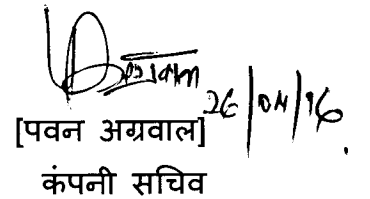 26/04/16
[पवन अग्रवाल]
कंपनी सचिव